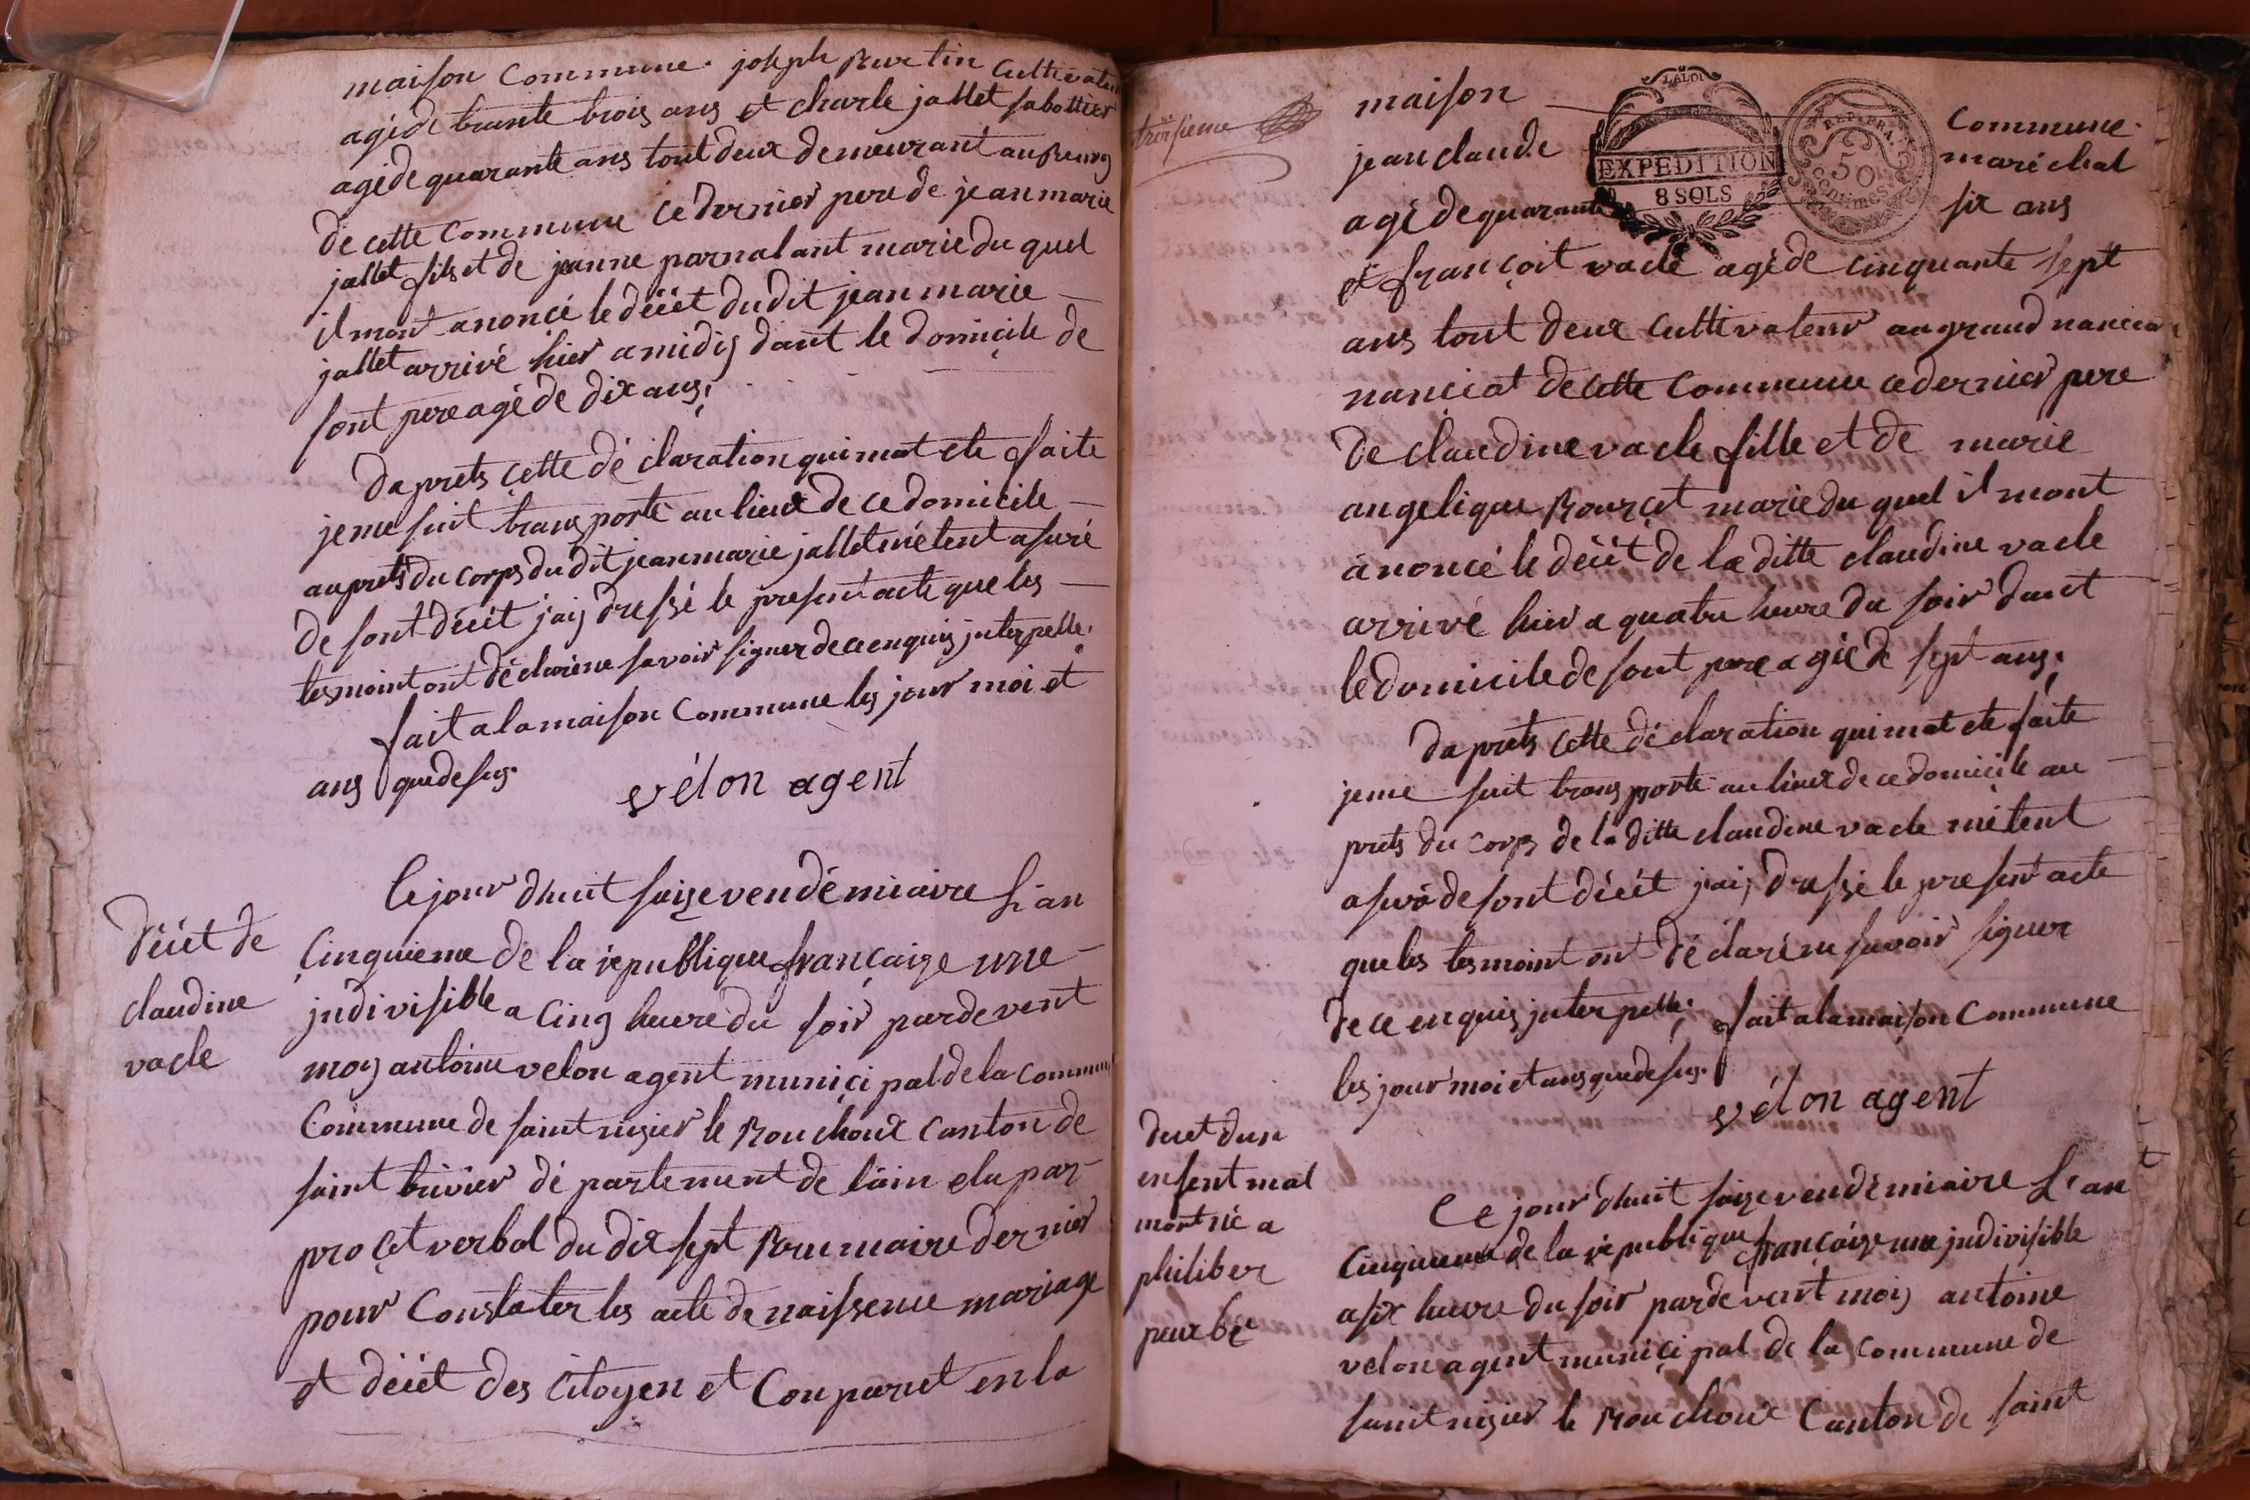 maison Commune. joseph Burtin Cultivateur
agé de trante trois ans et charle jallet sabottier
agé de quarante ans tout deux demeurant au Bourg
de cette Commune ce dernier pere de jean marie
jallet fils et de jeanne parnalant marie du quel
il mont anoncé le décét du dit jean marie
jallet arrivé hier a midij dant le domicile de
sont pere agé de dix ans.
daprets cette déclaration qui mat ete faite
je me suit transporté au lieux de ce domicile
auprets du corps du dit jean marie jallet métent asuré
de sont décét jaij dressé le present acte que les
tesmoint ont déclaré ne savoir signer de ce enquis jnterpellé.
fait a la maison Commune les jour moi et
ans que desus.
vélon agent
décét de
claudine
vacle
Ce jour dhuit saize vendémiaire L'an
Cinquieme de la république françaize une
jndivisible a Cinq heure du soir pardevent
moij antoine velon agent municipal de la commune
Commune de saint nizier le Bouchoux Canton de
saint trivier département de lain elu par
procet verbal du dix sept Brumaire dernier
pour Constater les acte de naissence mariage
et décét des Citoyen et Conparut en la
troisieme
maison
Commune.
LA LOI
EXPEDITION
8 SOLS
REP. FRA.
50
centimes
jean claude
maréchal
agé de quarante
six ans
et françoit vacle agé de cinquante sept
ans tout deux Cultivateur au grand nanciat
nanciat de cette Commune ce dernier pere
de claudine vacle fille et de marie
angelique Bourcet marie du quel il mont
anoncé le décét de la ditte claudine vacle
arrivé hier a quatre heure du soir dant
le domicile de sont pere agée de sept ans.
daprets cette déclaration qui mat ete faite
je me suit transporté au lieux de ce domicile au
prets du corps de la ditte claudine vacle métent
asuré de sont décét jaij dressé le present acte
que les tesmoint ont déclaré ne savoir signer
de ce enquis jnterpellé. fait a la maison Commune
les jour moi et ans que desus.
vélon agent
decet dun
enfent mal
mort né a
philiber
Ce jour dhuit saize vendémiaire L'an
Cinquieme de la république françaize une jndivisible
a six heure du soir pardevent moij antoine
velon agent municipal de la commune de
saint nizier le Bouchoux Canton de saint